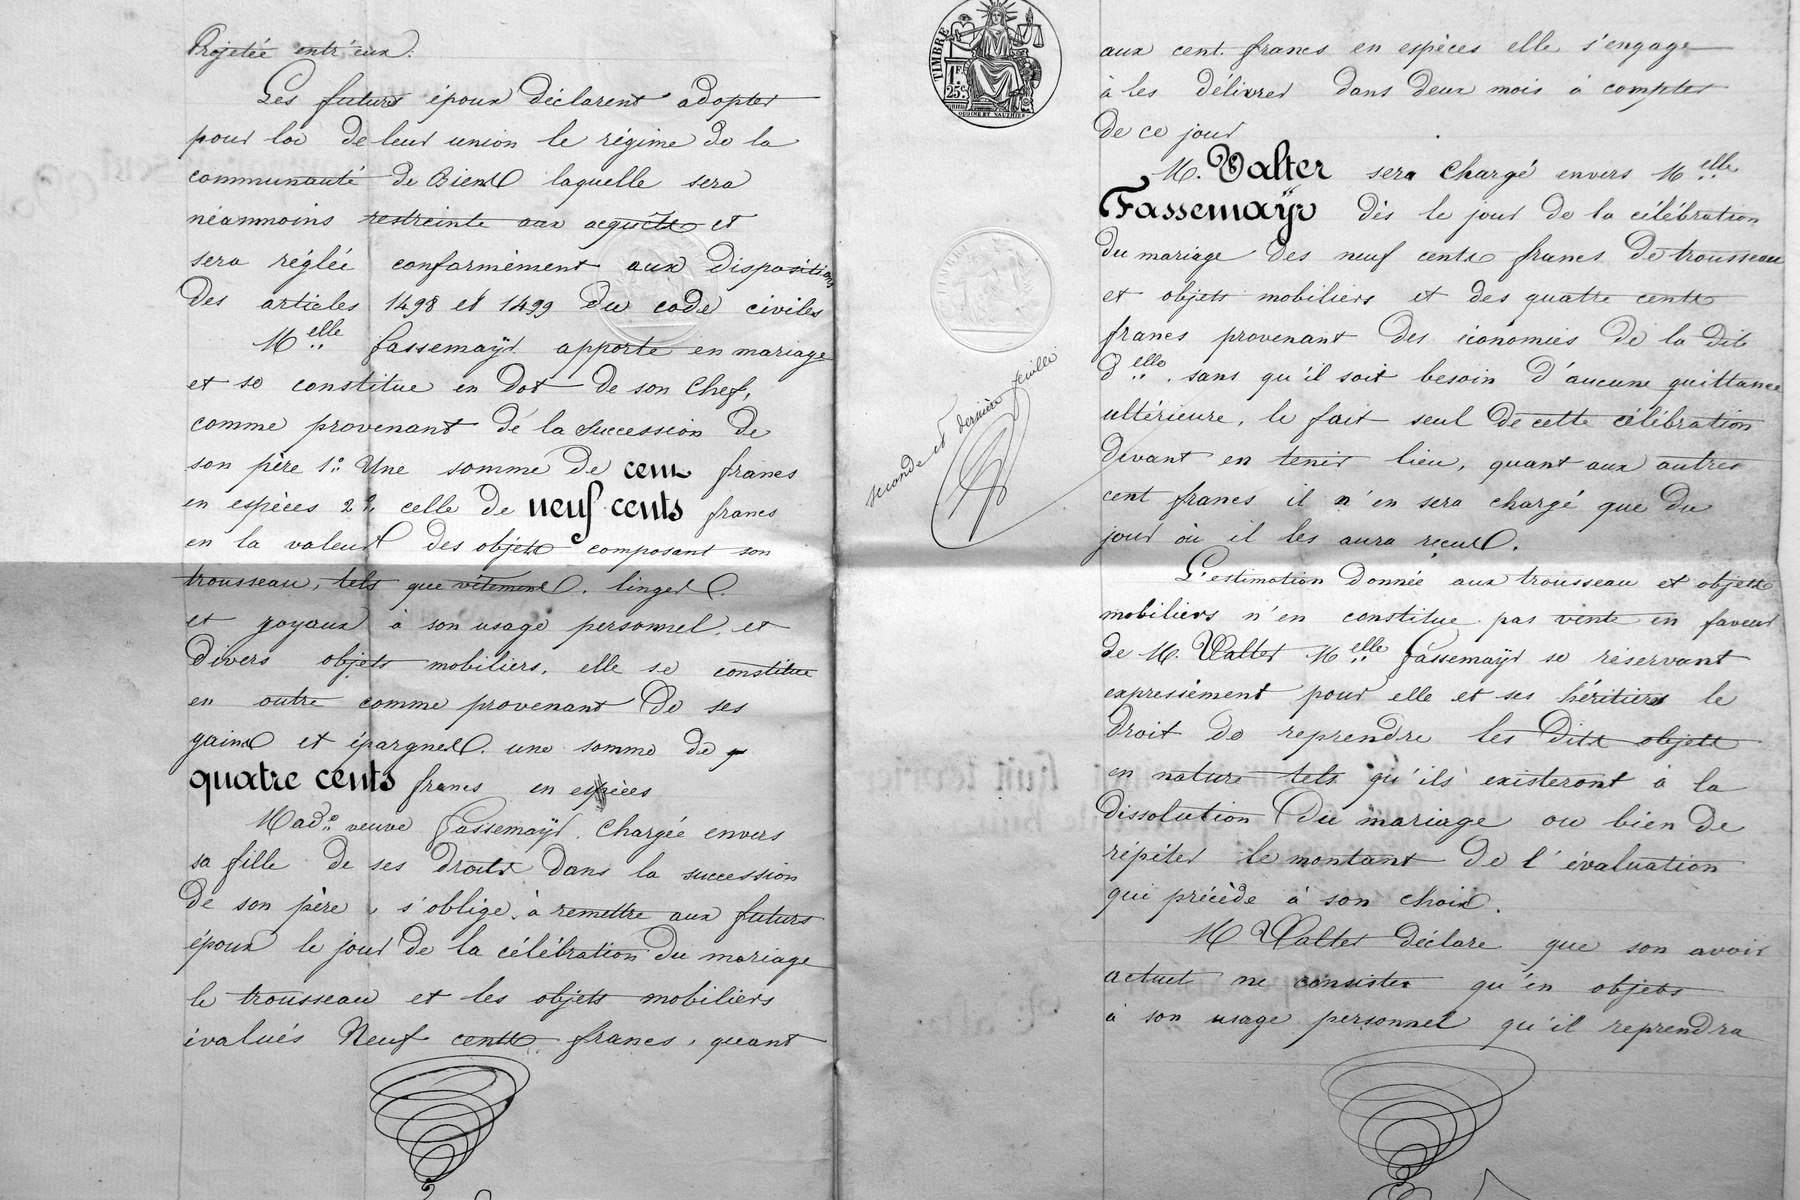 Projetée entr'eux.
Les futurs époux déclarent adopter
pour loi de leur union le régime de la
communauté de Biens laquelle sera
néanmoins restreinte aux acquêts et
sera réglée conformément aux dispositions
des articles 1498 et 1499 du code civiles
Melle Fassemayr apporte en mariage
et se constitue en dot de son chef,
comme provenant de la succession de
son père 1º Une somme de cent francs
en espèces 2º, celle de neuf cents francs
en la valeur des objets composant son
trousseau, tels que vêtements, linges,
et joyaux à son usage personnel, et
divers objets mobiliers, elle se constitue
en outre comme provenant de ses
gains et épargnes une somme de
quatre cents francs en espèces
Made veuve Fassemayr, chargée envers
sa fille de ses droits dans la succession
de son père, s'oblige à remettre aux futurs
époux le jour de la célébration du mariage
le trousseau et les objets mobiliers
évalués Neuf cents francs, quant
TIMBRE
1 F.
25 C.
OUDINE ET VAUTHIER
seconde et dernière feuille
aux cent francs en espèces elle s'engage
à les délivrer dans deux mois à compter
de ce jour
M. Valter sera chargé envers Melle
Fassemaÿr dès le jour de la célébration
du mariage des neuf cents francs de trousseau
et objets mobiliers et des quatre cents
francs provenant des économies de la dite
delle, sans qu'il soit besoin d'aucune quittance
ultérieure, le fait seul de cette célébration
devant en tenir lieu, quant aux autres
cent francs il n'en sera chargé que du
jour où il les aura reçus.
L'estimation donnée aux trousseau et objets
mobiliers n'en constitue pas vente en faveur
de M. Valter Melle Fassemaÿr se réservant
expressément pour elle et ses héritiers le
droit de reprendre les dits objets
en nature tels qu'ils existeront à la
dissolution du mariage ou bien de
répéter le montant de l'évaluation
qui précède à son choix.
M Valter déclare que son avoir
actuel ne consister qu'en objets
à son usage personnel qu'il reprendra